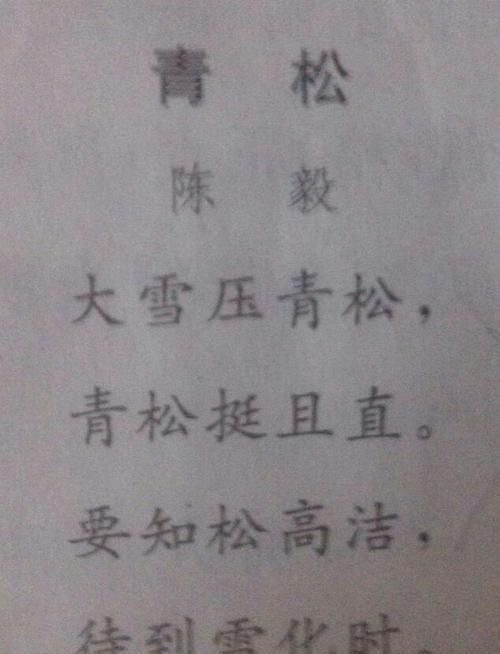 青 松
陈 毅
大雪压青松，
青松挺且直。
要知松高洁，
待到雪化时。